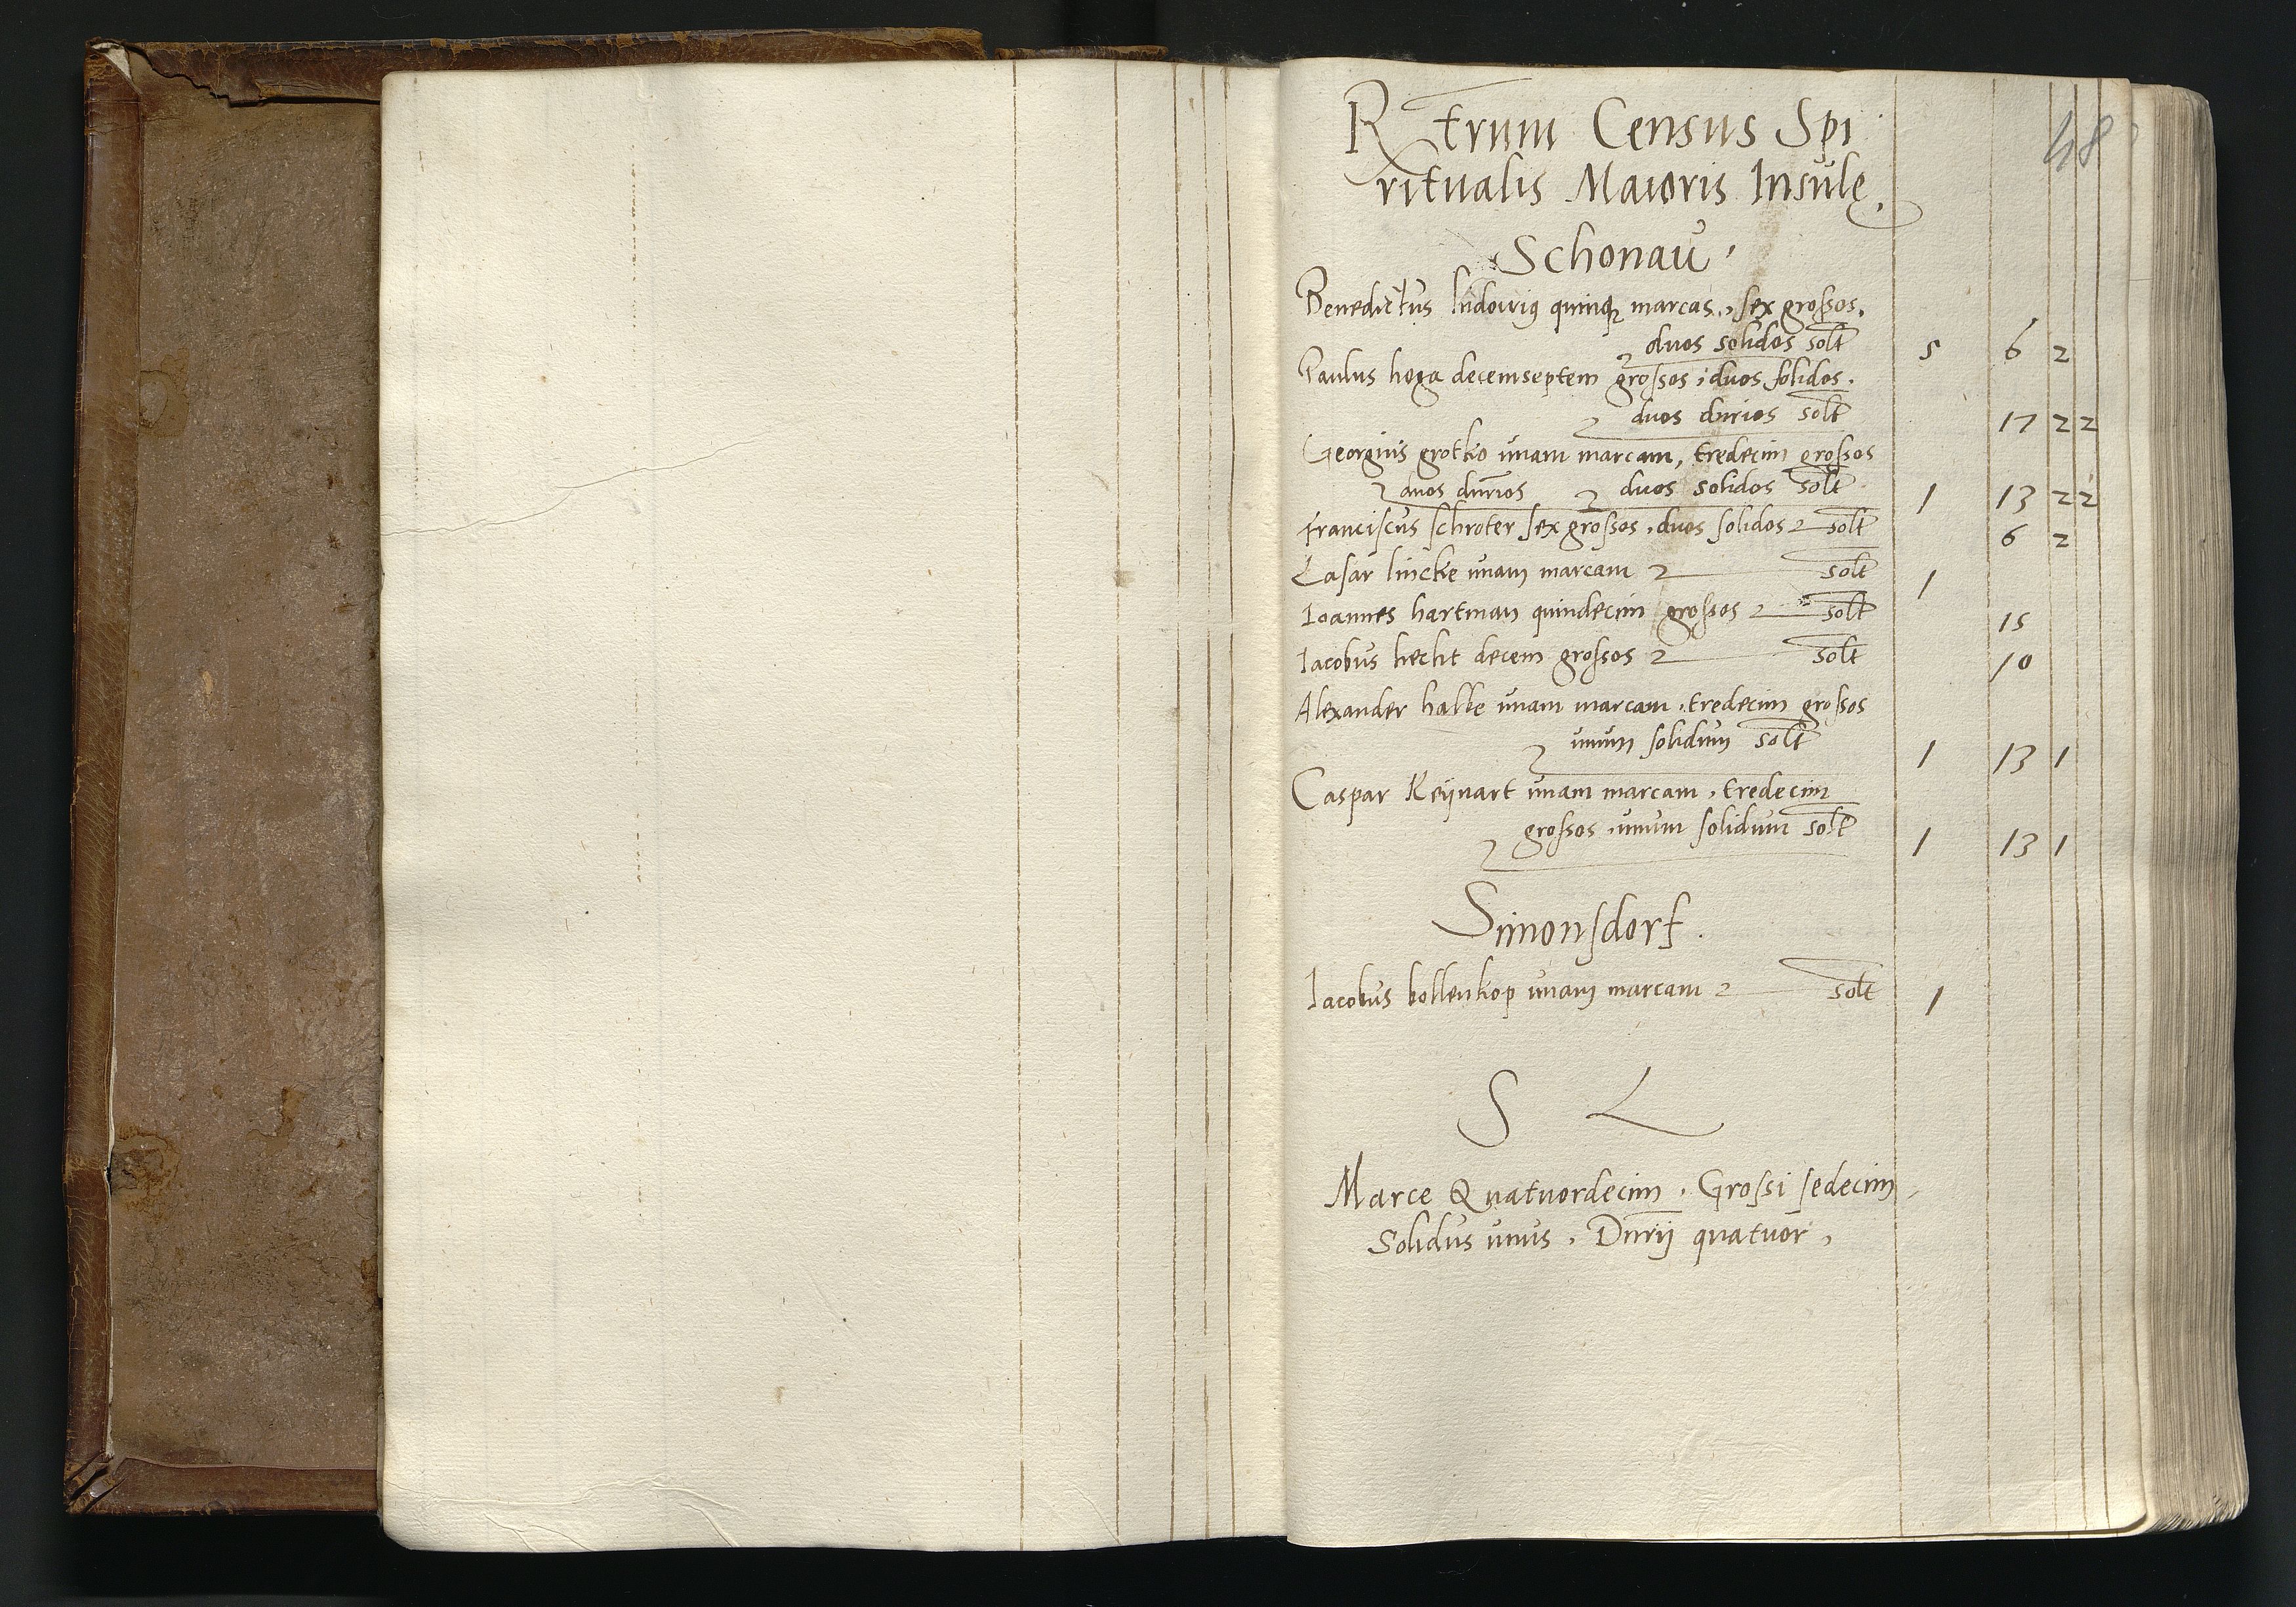 48
R trum Census Spi
ritualis Maioris Insulę.
Schonau.
Benedictus ludowig quinqꝫ marcas, sex grossos.
duos solidos solt 5 6 2
Paulus hoga decemseptem grossos, duos solidos.
duos dnrios solt 17 2 2
Georgius grotko unam marcam, tredecim grossos
duos dnrios duos solidos solt 1 13 2 2
Franciscus schroter sex grossos, duos solidos solt 6 2
Lasar lincke unam marcam solt 1
Ioannes hartman quindecim grossos solt 15
Iacobus hecht decem grossos solt 10
Alexander halbe unam marcam, tredecim grossos
unum solidum solt 1 13 1
Caspar Reijnart unam marcam, tredecim
grossos, unum solidum solt 1 13 1
Simonsdorf.
Iacobus bollenkop unam marcam solt 1
S L
Marce Quatuordecim, Grossi sedecim,
Solidus unus, Dnrij quatuor,